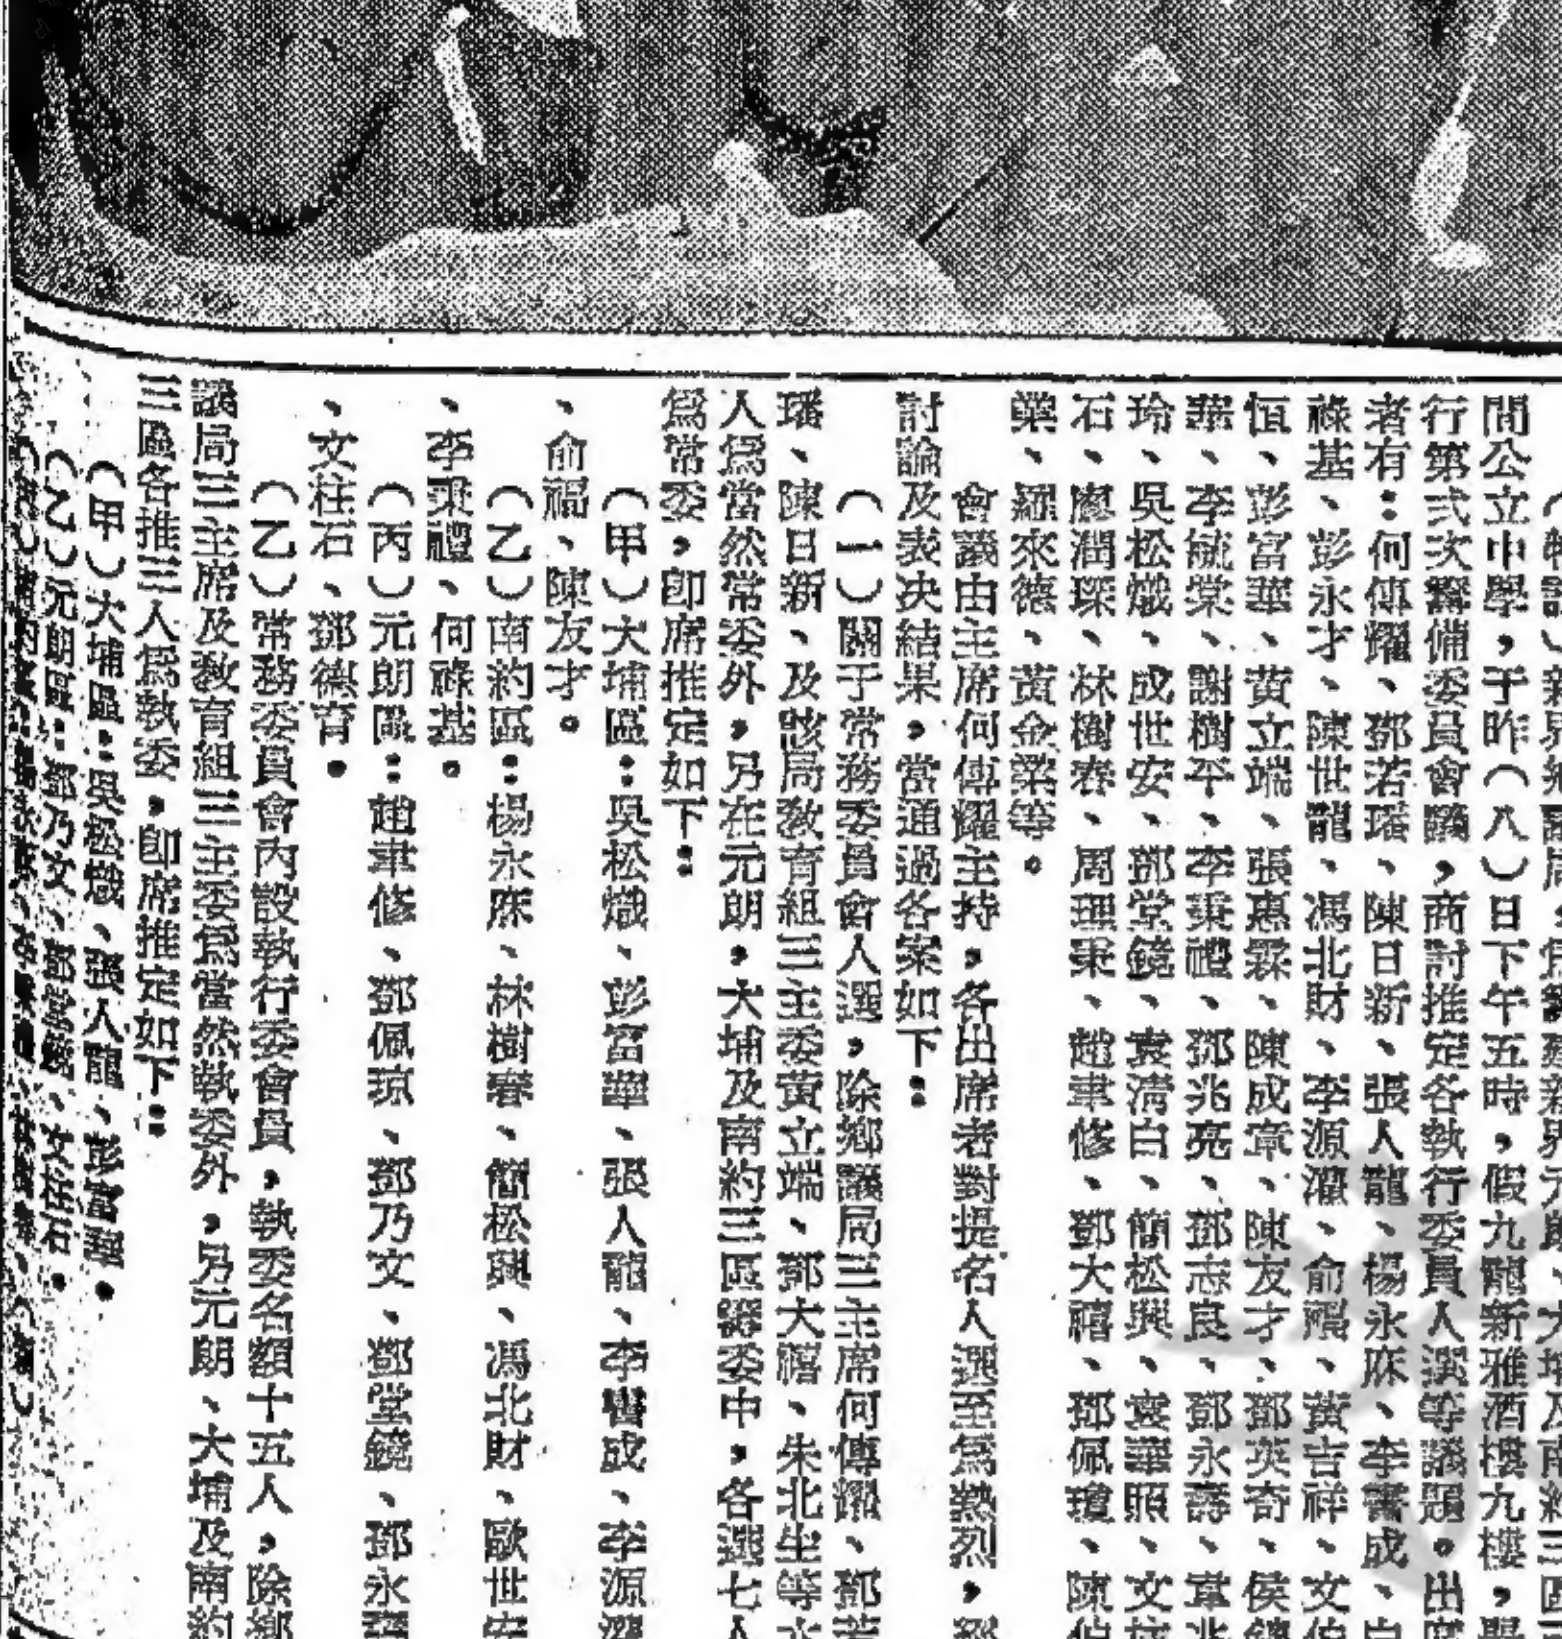 間公立中學，于昨（八）日下午五時，假九龍新雅酒樓九樓，
行第弍次籌備委員會議，商討推定各執行委員人選等議題。出席
者有：何傳耀、鄧若璠、陳日新、張人龍、楊永庥、李書成、
祿基、彭永才、陳世龍、馮北財、李源濯、俞福、黃吉祥、文
恒、彭富華、黃立端、張惠霖、陳成章、陳友才、鄧英奇、侯
華、李毓棠、謝樹平、李秉禮、鄧兆亮、鄧志良、鄧永壽、
玲、吳松熾、成世安、鄧堂鏡、袁清白、簡松興、袁華照、文
石、廖潤琛、林樹春、周理秉、趙聿修、鄧大禧、鄧佩瓊、陳
業、羅來德、黃金業等。
會議由主席何傳耀主持，各出席者對提名人選至爲熱烈，經
討論及表决結果，當通過各案如下：
（一）關于常務委員會人選，除鄉議局三主席何傳耀、鄧若
璠、陳日新、及該局教育組三主委黃立端、鄧大禧、朱北生等六
人爲當然常委外，另在元朗，大埔及南約三區籌委中，各選七人
爲常委，卽席推定如下：
（甲）大埔區：吳松熾、彭富華、張人龍、李書成、李源濯
、俞福、陳友才。
（乙）南約區：楊永庥、林樹春、簡松興、馮北財、歐世安
、李秉禮、何祿基。
（丙）元朗區：趙聿修、鄧佩琼、鄧乃文、鄧堂鏡、鄧永
、文柱石、鄧德育。
（乙）常務委員會內設執行委會員，執委名額十五人，除鄉
議局三主席及教育組三主委爲當然執委外，另元朗、大埔及南約
三區各推三人爲執委，卽席推定如下：
（甲）大埔區：吳松熾、張人龍、彭富華。
（乙）元朗區：鄧乃文、鄧堂鏡、文柱石。